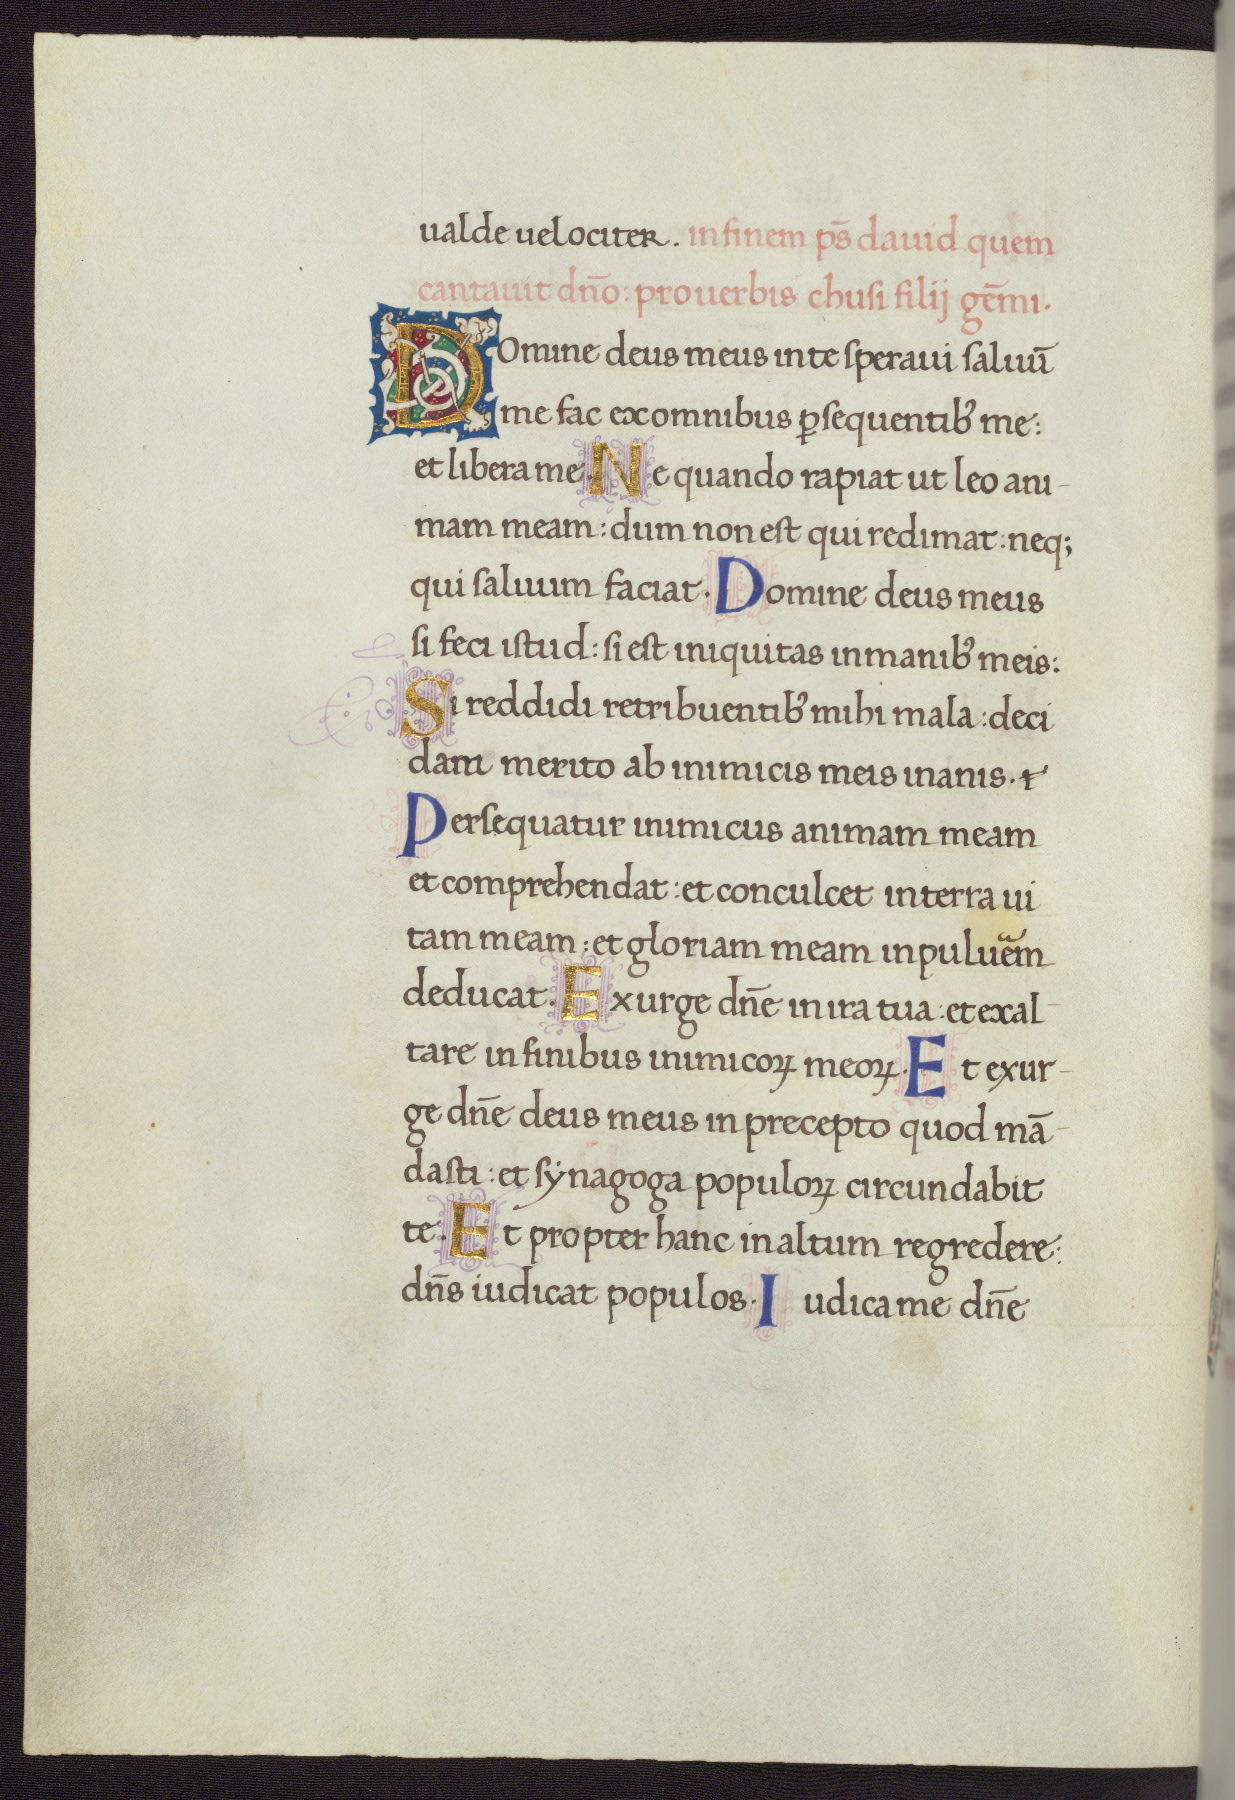 ualde uelociter. in finem ps̄ dauid quem
cantauit dn̄o: prouerbis chusi filij gēmi.
DOmine deus meus in te speraui saluū
me fac ex omnibus ꝑsequentib᾽ me:
et libera me. Ne quando rapiat ut leo ani-
mam meam: dum non est qui redimat: neq;
qui saluum faciat. Domine deus meus
si feci istud: si est iniquitas in manib᾽ meis:
Si reddidi retribuentib᾽ mihi mala: deci
dam merito ab inimicis meis inanis.
Persequatur inimicus animam meam
et comprehendat: et conculcet in terra ui
tam meam: et gloriam meam in puluem̃
deducat. Exurge dn̄e in ira tua: et exal-
tare in finibus inimicoꝝ meoꝝ. Et exur-
ge dn̄e deus meus in precepto quod mā-
dasti: et sẏnagoga populoꝝ circundabit
te. Et propter hanc in altum regredere:
dn̄s iudicat populos. Iudica me dn̄e